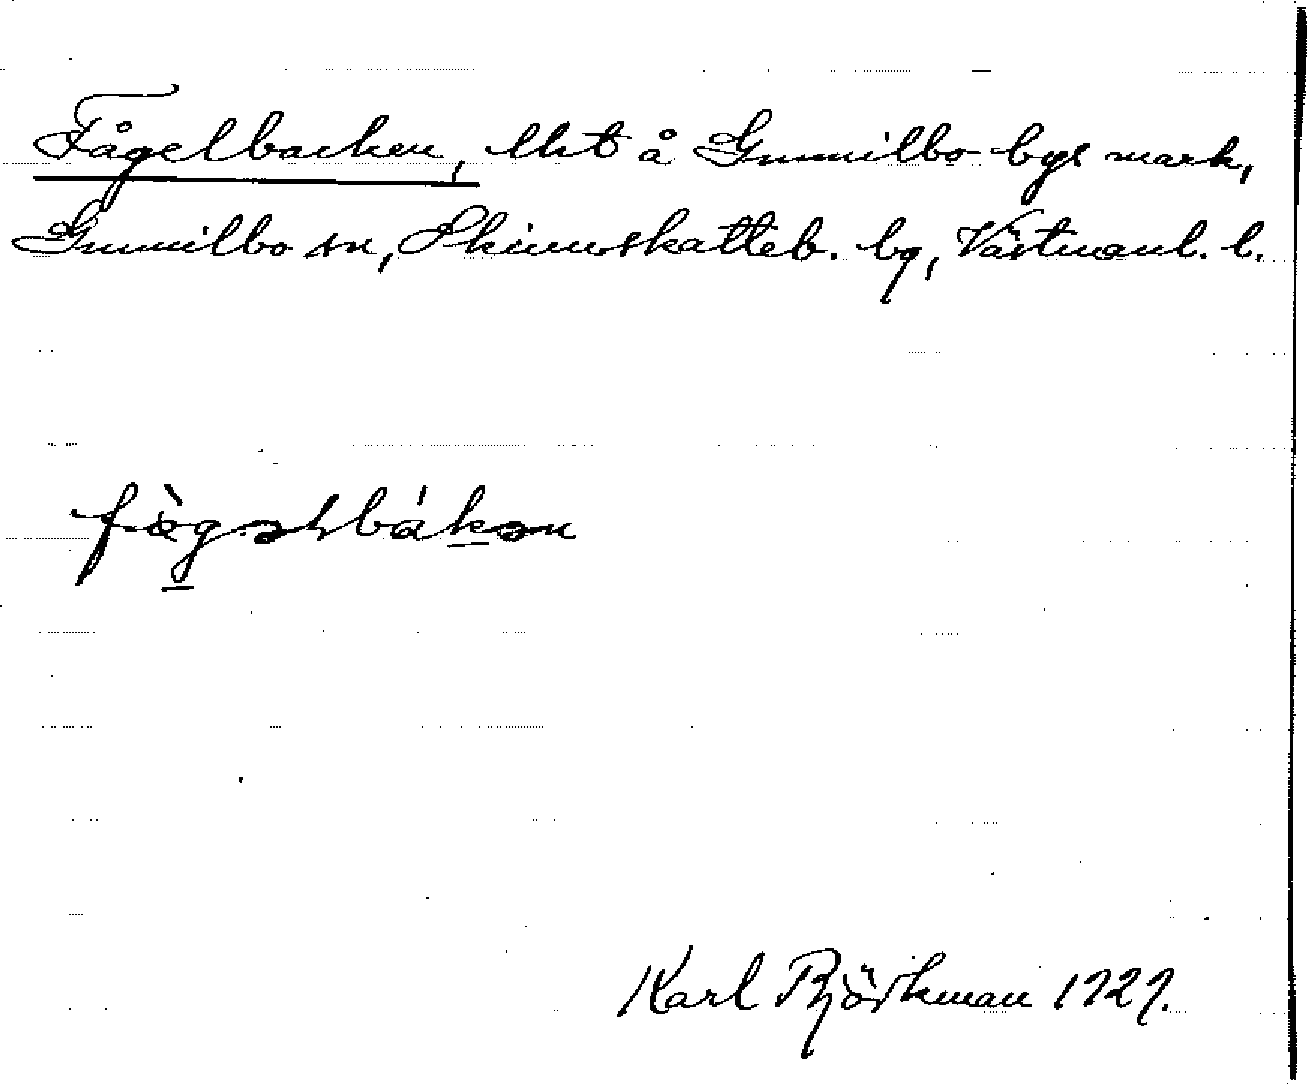 Fågelbacken, lht å Gunnilbo bys mark,
Gunnilbo sn, Skinnskatteb. bg, Västmanl. l.
Karl Björkman 1929.